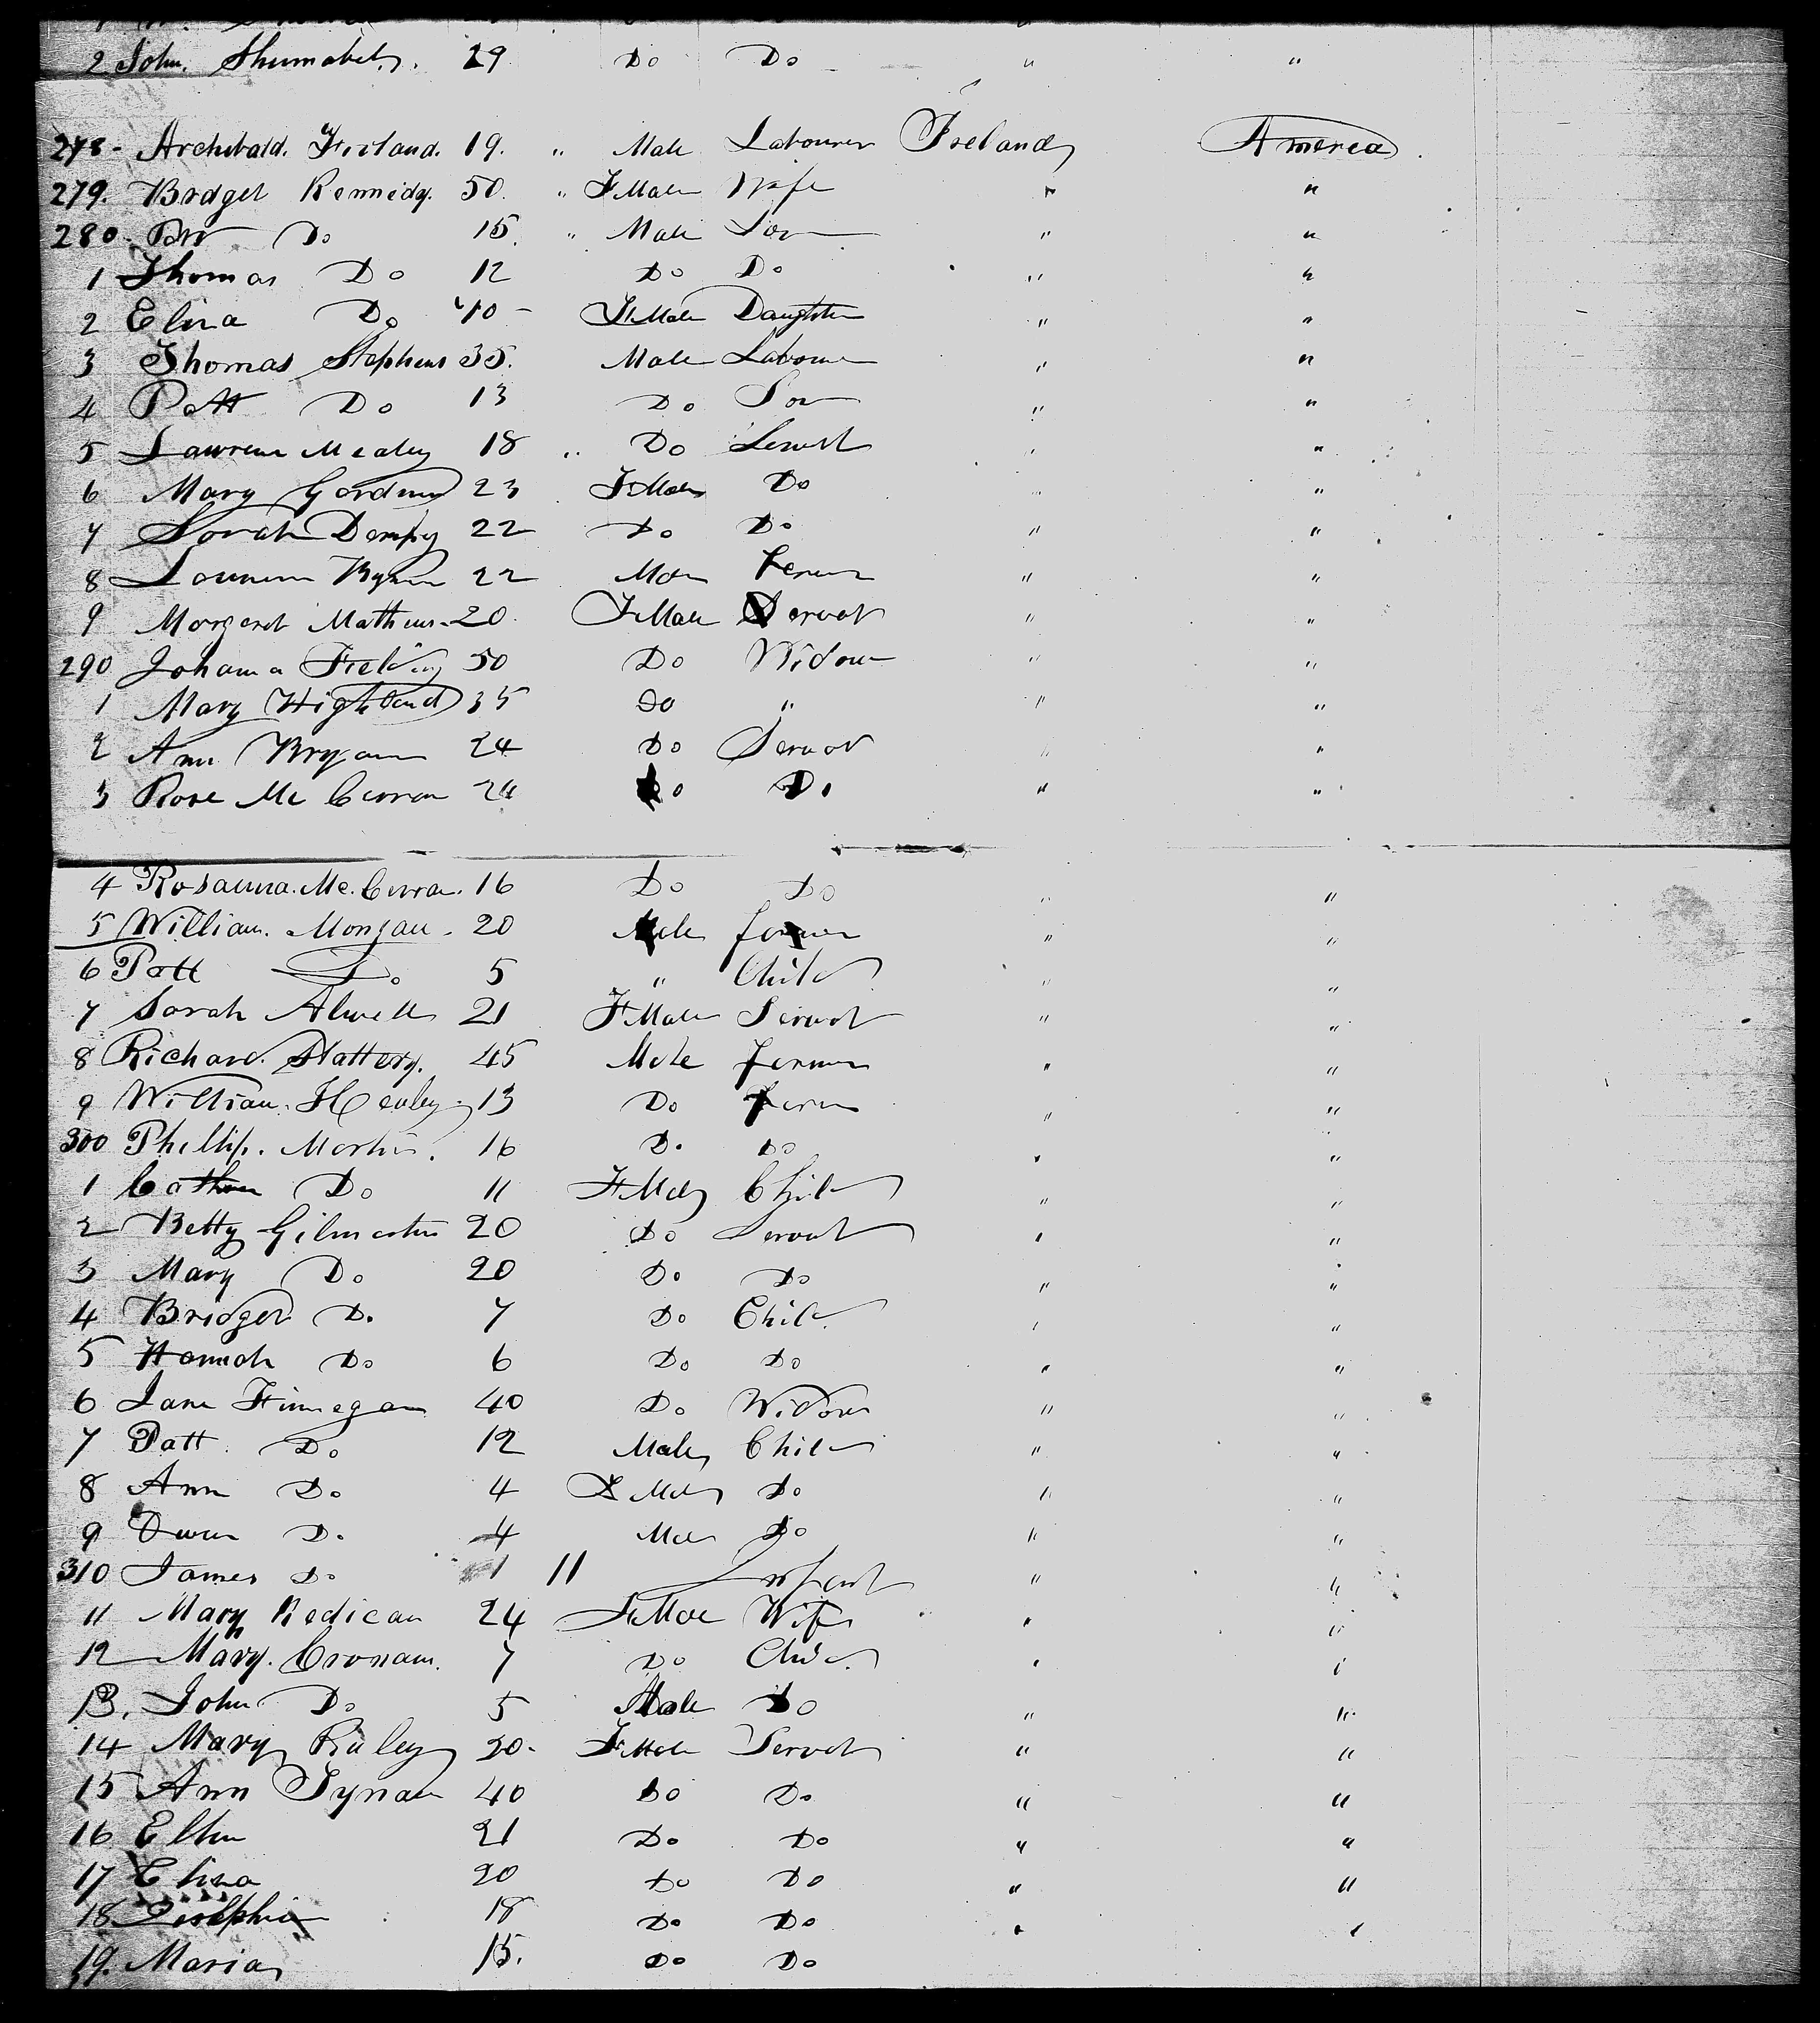 2 John. 29 Do Do " "
278- Archibald. 19. " Male Labourer Ireland America
279. Bridget Kennedy. 50. " FMale Wife " "
280. Do 15. " Male Son " "
1 Thomas Do 12 Do Do " "
2 Eliza Do 10 - FMale Daughter " "
3 Thomas Stephens 35. Male Labourer " "
4 Patt Do 13 Do Son " "
5 Lawrence Mealey 18 " Do Servt " "
6 Mary 23 FMale Do " "
7 Sarah Dempsy 22 Do Do " "
8 22 Male " "
9 Margaret Mathews 20. FMale Servat " "
290 Johanna Fielding 50 Do Widow " "
1 Mary Highland 35 Do " " "
2 Ann Bryan 24 Do Servat " "
3 Rose Mc Curran 24 Do Do " "
4 Rosanna. Mc. Curran. 16 Do Do " "
5 William. 20 Male farmer " "
6 Patt Do 5 " Child " "
7 Sarah Alwell 21 FMale Servat " "
8 Richard. Slattery. 45 Male farmer " "
9 William. Healey. 13 Do " "
300 Phillip. Martin. 16 Do Do " "
1 Do 11 FMale Child " "
2 Betty Gilmartin 20 Do Servat " "
3 Mary Do 20 Do Do " "
4 Bridget Do 7 Do Child. " "
5 Hannah Do 6 Do Do " "
6 Jane Finnegan 40 Do Widow " "
7 Patt. Do 12 Male Child " "
8 Ann Do 4 FMale Do " "
9 Owen Do 4 Male Do " "
310 James Do 11 Infant " "
11 Mary Redican 24 FMale Wife " "
12 Mary. Cronan. 7 Do Child. " "
13. John Do 5 Male Do " "
14 Mary Rialey 20- FMale Servat " "
15 Ann Tynan 40 Do Do " "
16 Ellen 21 Do Do " "
17 Eliza 20 Do Do " "
18 18 Do Do " "
19. Maria 15. Do Do